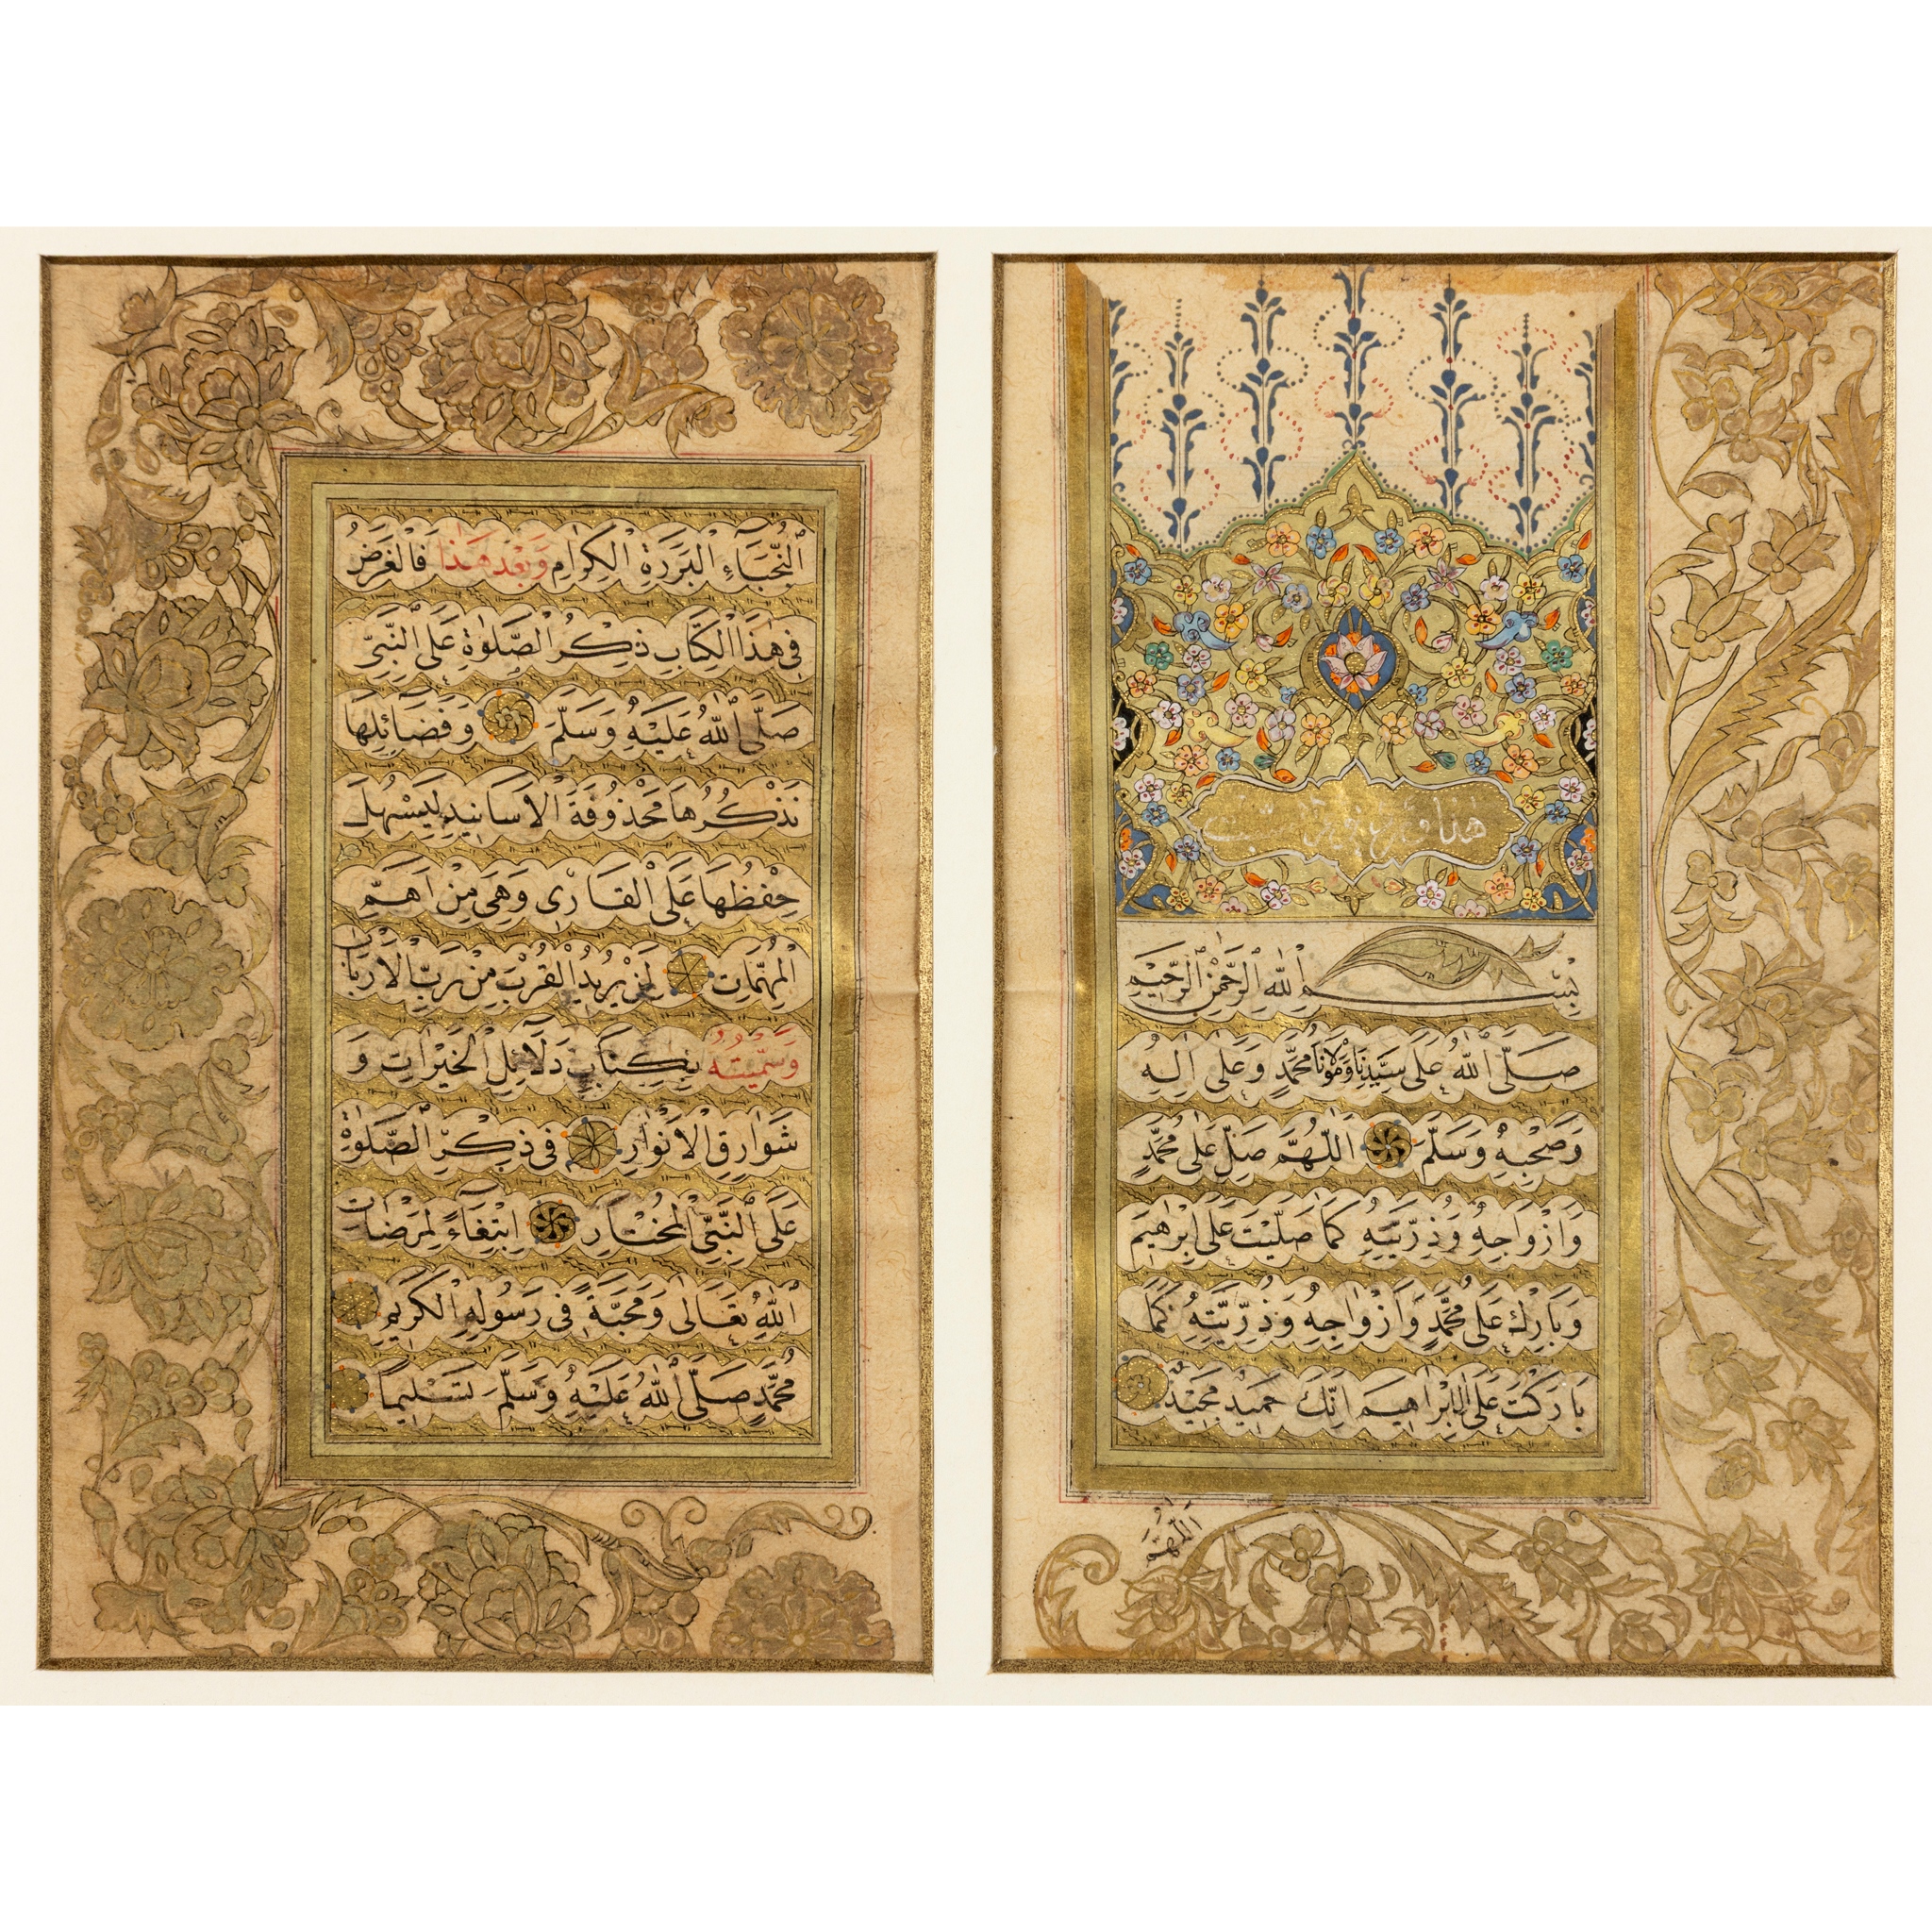 بِسْمِ اللهِ الرَّحْمٰنِ الرَّحِيْمِ
صَلَّى اللهُ عَلَى سَيِّدِنَا وَمَوْلَانَا مُحَمَّدٍ وَعَلَى اٰلِهِ
وَصَحْبِهِ وَسَلَّمَ اَللّٰهُمَّ صَلِّ عَلَى مُحَمَّدٍ
وَاَزْوَاجِهِ وَذُرِّيَّتِهِ كَمَا صَلَّيْتَ عَلَى اِبْرٰهِيمَ
وَبَارِكْ عَلَى مُحَمَّدٍ وَاَزْوَاجِهِ وَذُرِّيَّتِهِ كَمَا
بَارَكْتَ عَلَى اِبْرَاهِيمَ اِنَّكَ حَمِيدٌ مَجِيدٌ
اَللّٰهُمَّ
النُّجَبَآءِ الْبَرَرَةِ الْكِرَامِ وَبَعْدَ هَذَا فَالْغَرَضُ
فِى هٰذَا الْكِتَابِ ذِكْرُ الصَّلٰوةِ عَلَى النَّبِىِّ
صَلَّى اللهُ عَلَيْهِ وَسَلَّمَ وَفَضَآئِلِهَا
نَذْكُرُهَا مَحْذُوفَةَ الْاَسَانِيدِ لِيَسْهُلَ
حِفْظُهَا عَلَى الْقَارِى وَهِىَ مِنْ اَهَمِّ
الْمُهِمَّاتِ لِمَنْ يُرِيدُ الْقُرْبَ مِنْ رَبِّ الْاَرْبَابِ
وَسَمَّيْتُهُ بِكِتَابِ دَلَآئِلِ الْخَيْرَاتِ وَ
شَوَارِقِ الْاَنْوَارِ فِى ذِكْرِ الصَّلٰوةِ
عَلَى النَّبِىِّ الْمُخْتَارِ اِبْتِغَآءً لِمَرْضَاتِ
اللهِ تَعَالٰى وَمَحَبَّةً فِى رَسُولِهِ الْكَرِيمِ
مُحَمَّدٍ صَلَّى اللهُ عَلَيْهِ وَسَلَّمَ تَسْلِيمًا